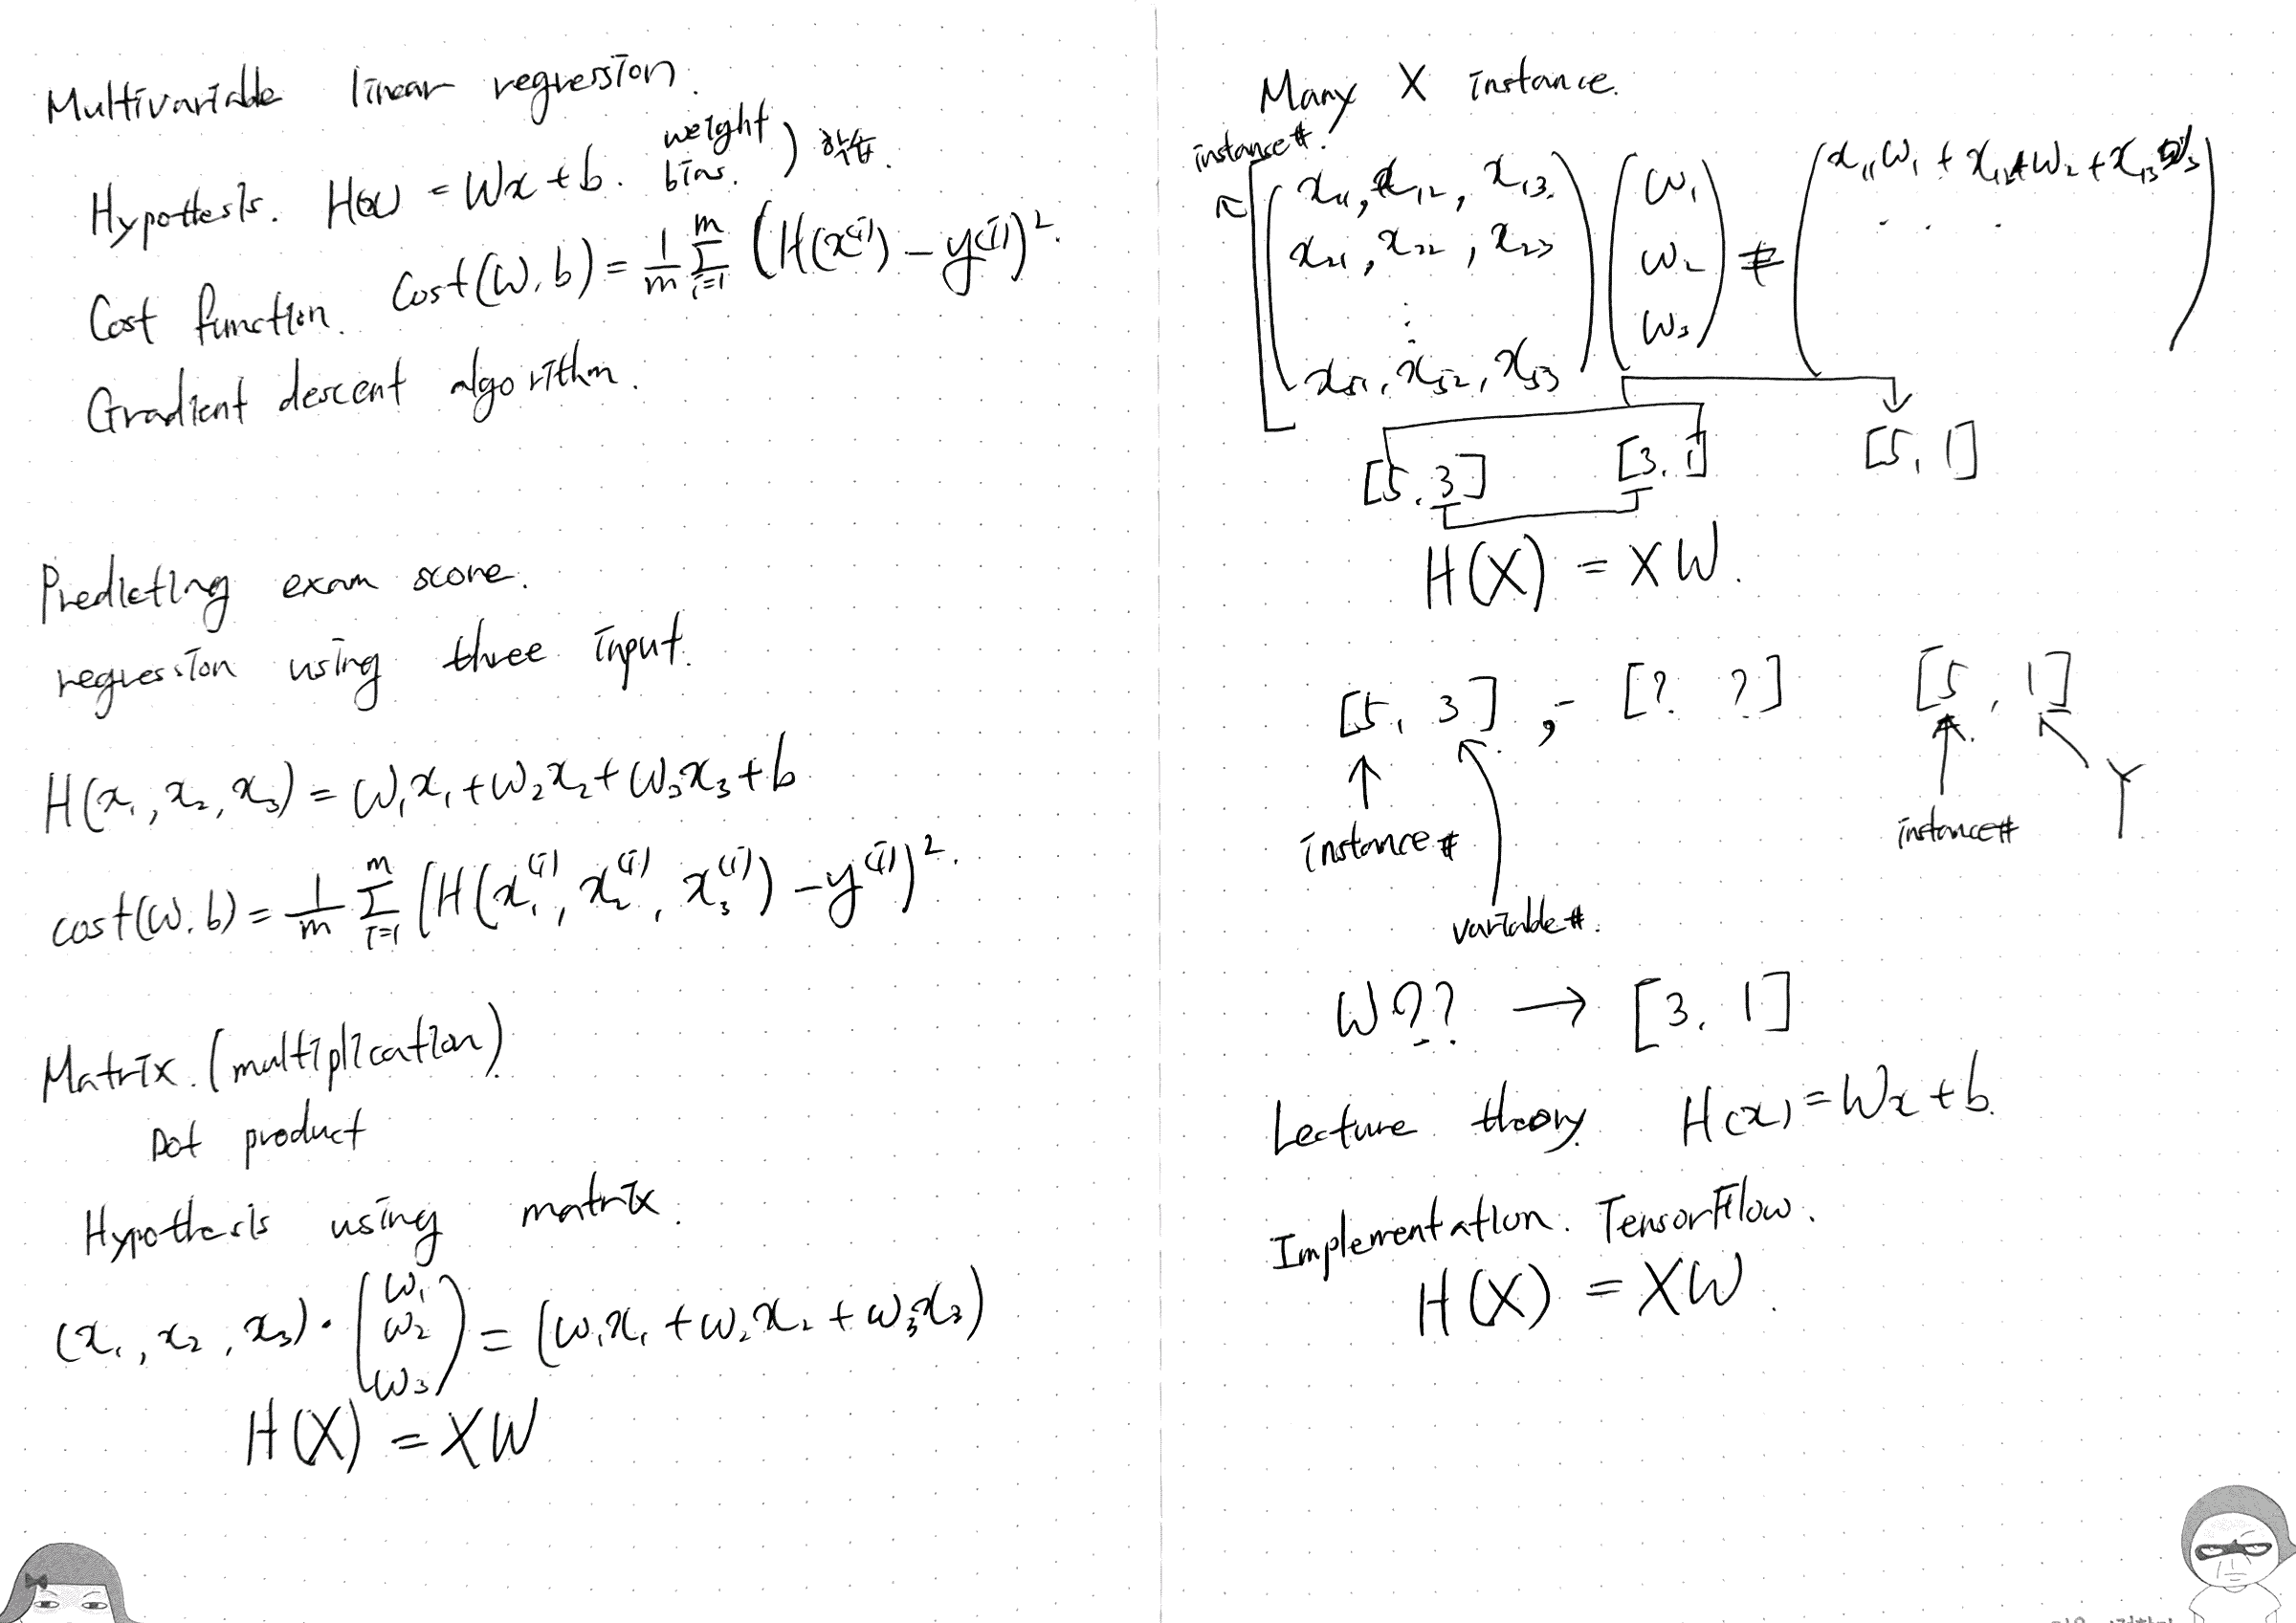 Multivariable linear regression.
Hypothesis. H(x) = Wx + b. weight bias. ) 학습.
Cost function. Cost(W, b) = 1/m Σ_{i=1}^{m} (H(x^(i)) - y^(i))².
Gradient descent algorithm.
Predicting exam score.
regression using three input.
H(x₁, x₂, x₃) = w₁x₁ + w₂x₂ + w₃x₃ + b
cost(W, b) = 1/m Σ_{i=1}^{m} (H(x₁^(i), x₂^(i), x₃^(i)) - y^(i))².
Matrix. (multiplication)
Dot product
Hypothesis using matrix.
(x₁, x₂, x₃) · (w₁ w₂ w₃) = (w₁x₁ + w₂x₂ + w₃x₃)
H(X) = XW
Many X instance.
instance#.
x₁₁, x₁₂, x₁₃.
x₂₁, x₂₂, x₂₃
⋮
x₅₁, x₅₂, x₅₃
w₁
w₂
w₃
=
x₁₁w₁ + x₁₂w₂ + x₁₃w₃
. . .
[5, 3] [3, 1] [5, 1]
H(X) = XW.
[5, 3], [? ?] [5, 1]
instance# instance# Y
variable#.
W?? → [3, 1]
Lecture theory. H(x) = Wx + b.
Implementation. TensorFlow.
H(X) = XW.